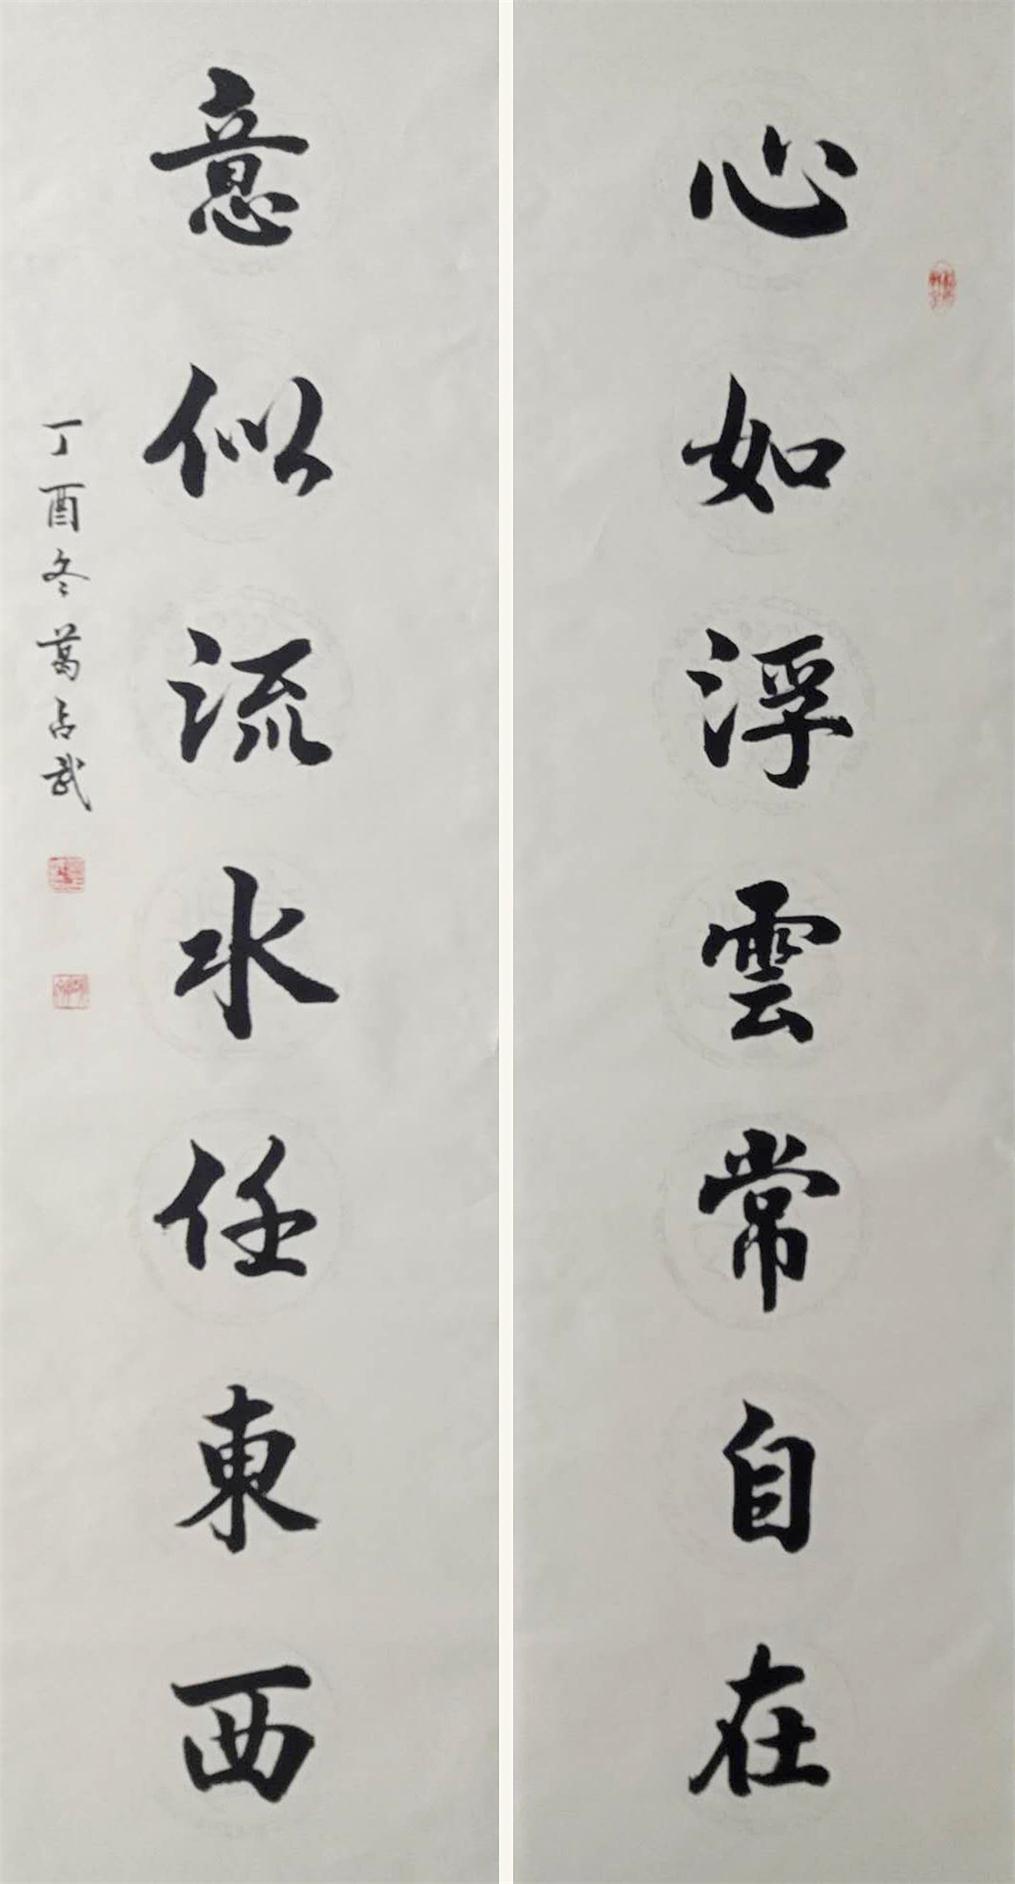 心如浮雲常自在
意似流水任東西
丁酉冬葛占武